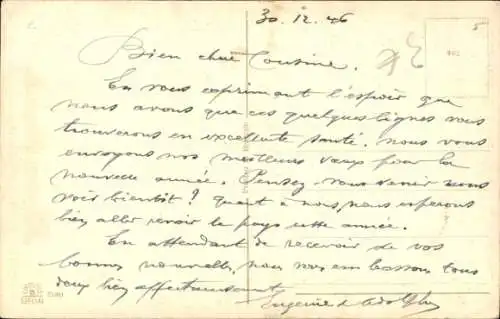 30. 12. 46
Bien cher Cousine.
En vous exprimant l'espoir que
nous avons que ces quelques lignes vous
trouverons en excellente santé, nous vous
envoyons nos meilleurs vœux pour la
nouvelle année. Pensez-vous venir nous
voir bientôt? quant à nous, nous esperons
bien aller revoir le pays cette année.
En attendant de recevoir de vos
bonnes nouvelles, nous vous embrassons tous
deux bien affectueusement
Eugénie & Adolphe